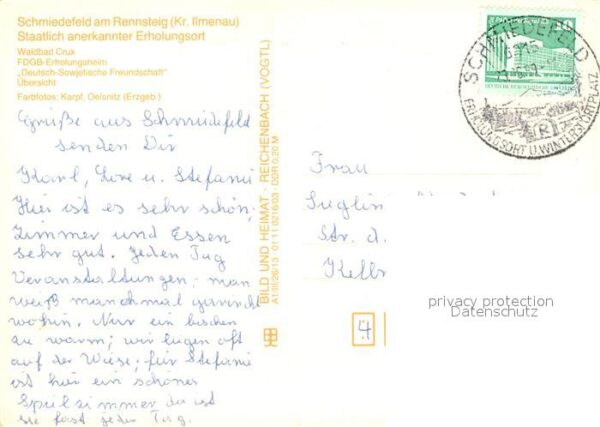 Schmiedefeld am Rennsteig (Kr. Ilmenau)
Staatlich anerkannter Erholungsort
Waldbad Crux
FDGB-Erholungsheim
„Deutsch-Sowjetische Freundschaft"
Übersicht
Farbfotos: Karpf, Oelsnitz (Erzgeb.)
Grüße aus Schmiedefeld
senden Dir
Karl, Lore u. Stefanie
Hier ist es sehr schön,
Zimmer und Essen
sehr gut. Jeden Tag
Veranstaltungen, man
weiß manchmal garnicht
wohin. Nur ein bischen
zu warm; wir liegen oft
auf der Wiese; für Stefanie
ist hier ein schönes
Spielzimmer da ist
sie fast jeden Tag.
BILD UND HEIMAT · REICHENBACH (VOGTL)
A1/III/26/13 01 11 0216/03 · DDR 0,20 M
SCHMIEDEFELD
ERHOLUNGSORT U. WINTERSPORTPLATZ
(R)
Frau
Str. d.
4
privacy protection
Datenschutz